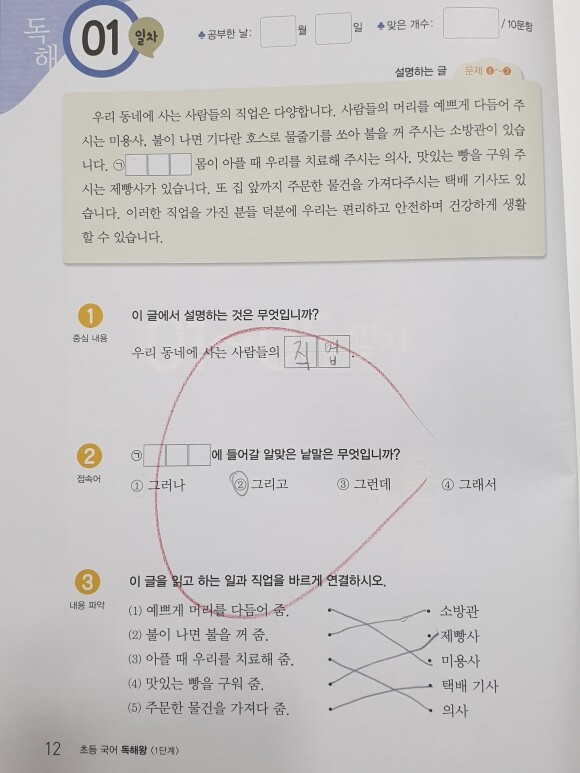 독해
01 일차
♣공부한 날: 월 일 ♣맞은 개수: / 10문항
설명하는 글 문제 ❶~❸
우리 동네에 사는 사람들의 직업은 다양합니다. 사람들의 머리를 예쁘게 다듬어 주
시는 미용사, 불이 나면 기다란 호스로 물줄기를 쏘아 불을 꺼 주시는 소방관이 있습
니다. ㉠ 몸이 아플 때 우리를 치료해 주시는 의사, 맛있는 빵을 구워 주
시는 제빵사가 있습니다. 또 집 앞까지 주문한 물건을 가져다주시는 택배 기사도 있
습니다. 이러한 직업을 가진 분들 덕분에 우리는 편리하고 안전하며 건강하게 생활
할 수 있습니다.
1 이 글에서 설명하는 것은 무엇입니까?
중심 내용
우리 동네에 사는 사람들의 직업.
2 ㉠ 에 들어갈 알맞은 낱말은 무엇입니까?
접속어
① 그러나 ② 그리고 ③ 그런데 ④ 그래서
3 이 글을 읽고 하는 일과 직업을 바르게 연결하시오.
내용 파악
(1) 예쁘게 머리를 다듬어 줌. 소방관
(2) 불이 나면 불을 꺼 줌. 제빵사
(3) 아플 때 우리를 치료해 줌. 미용사
(4) 맛있는 빵을 구워 줌. 택배 기사
(5) 주문한 물건을 가져다 줌. 의사
12 초등 국어 독해왕 〈1단계〉